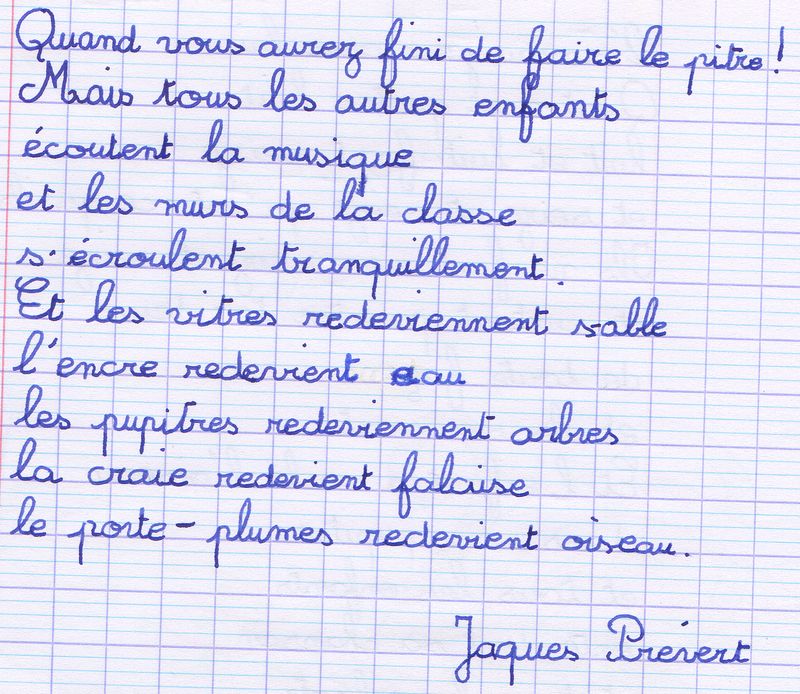 Quand vous aurez fini de faire le pitre!
Mais tous les autres enfants
écoutent la musique
et les murs de la classe
s'écroulent tranquillement.
Et les vitres redeviennent sable
l'encre redevient eau
les pupitres redeviennent arbres
la craie redevient falaise
le porte-plumes redevient oiseau.
Jaques Prévert